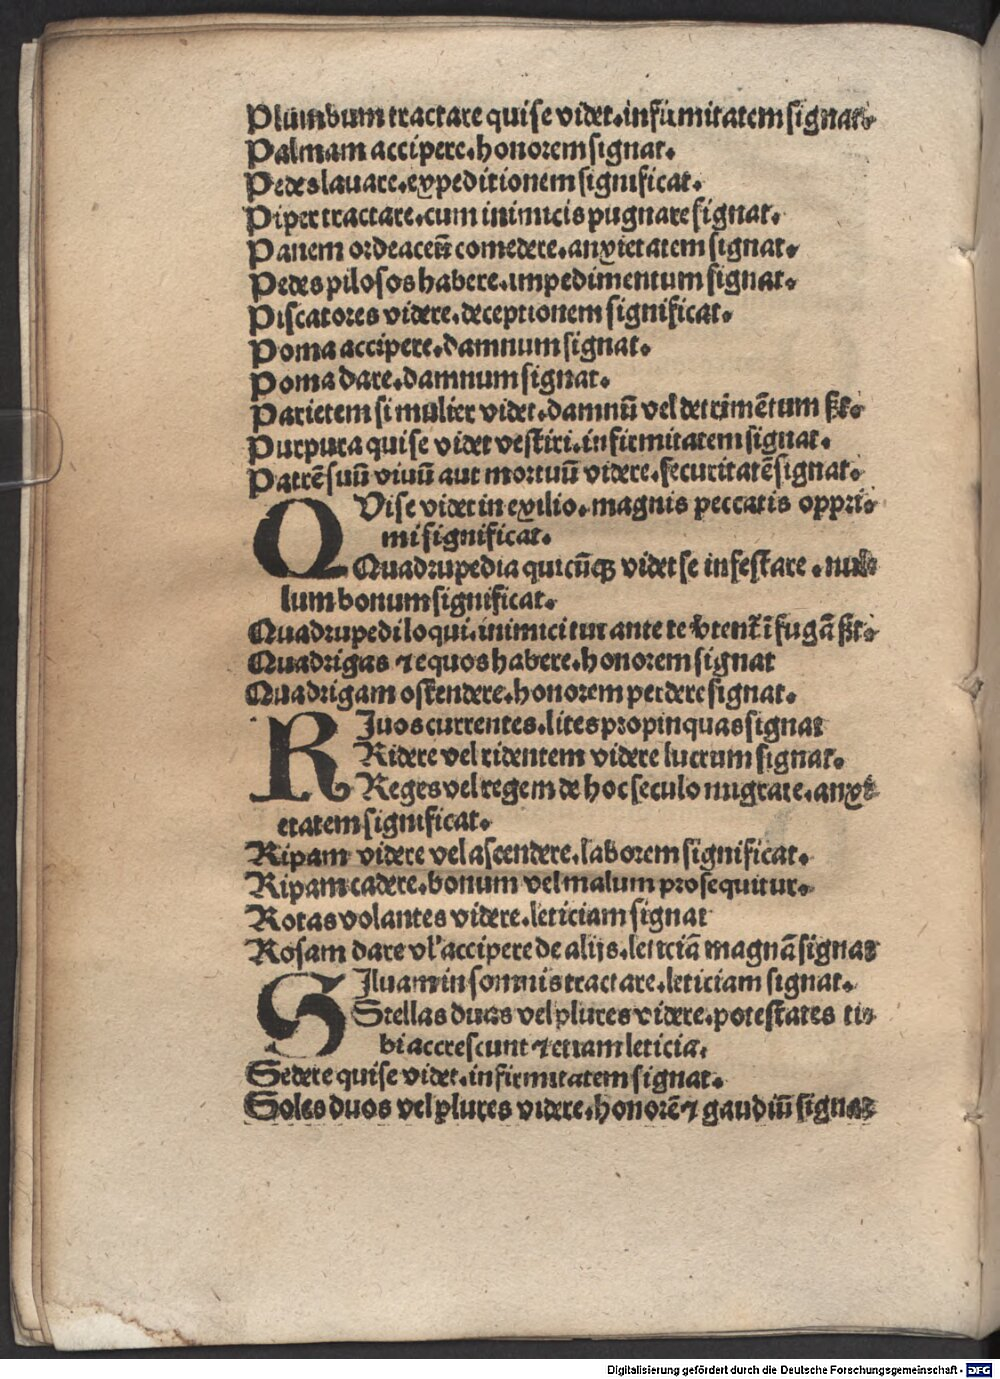 Plumbum tractare qui se videt. infirmitatem signat.
Palmam accipere. honorem signat.
Pedes lauare. expeditionem significat.
Piper tractare. cum inimicis pugnare signat.
Panem ordeaceū comedere. anxietatem signat.
Pedes pilosos habere. impedimentum signat.
Piscatores videre. deceptionem significat.
Poma accipere. damnum signat.
Poma dare. damnum signat.
Parietem si mulier videt. damnū vel detrimētum
Purpura qui se videt vestiri. infirmitatem signat.
Patrē suū viuū aut mortuū videre. securitatē signat.
QVi se videt in exilio. magnis peccatis oppri⸗
mi significat.
Quadrupedia quicūqꝫ videt se infestare. nul⸗
lum bonum significat.
Quadrupedi loqui. inimici tui ante te fugā
Quadrigas ⁊ equos habere. honorem signat
Quadrigam ostendere. honorem perdere signat.
RIuos currentes. lites propinquas signat
Ridere vel ridentem videre lucrum signat.
Reges vel regem de hoc seculo migrare. anxi
etatem significat.
Ripam videre vel ascendere. laborem significat.
Ripam cadere. bonum vel malum prosequitur.
Rotas volantes videre. leticiam signat
Rosam dare vl' accipere de alijs. leticiā magnā signat
SIluam in somnis tractare. leticiam signat.
Stellas duas vel plures videre. potestates ti⸗
bi accrescunt ⁊ etiam leticia.
Sedere qui se videt. infirmitatem signat.
Soles duos vel plures videre. honorē ⁊ gaudiū signat
Digitalisierung gefördert durch die Deutsche Forschungsgemeinschaft - DFG